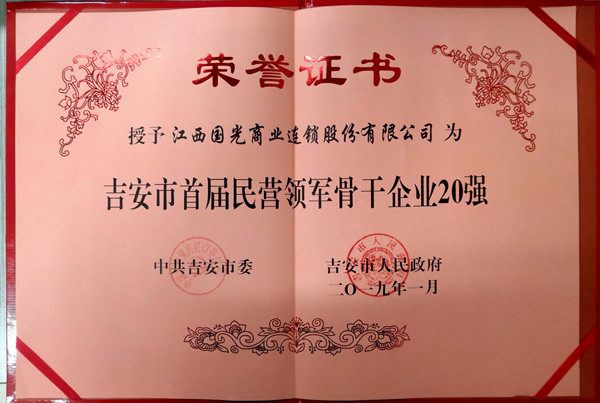 荣誉证书
授予江西国光商业连锁股份有限公司为
吉安市首届民营领军骨干企业20强
中共吉安市委 吉安市人民政府
二〇一九年一月